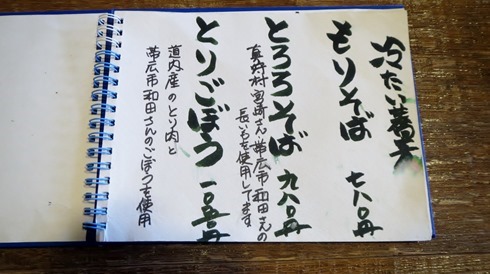 冷たい蕎麦
もりそば 七八〇円
とろろそば 九八〇円
真狩村宮崎さん・帯広市和田さんの
長いもを使用してます
とりごぼう 一〇五〇円
道内産のとり肉と
帯広市和田さんのごぼうを使用